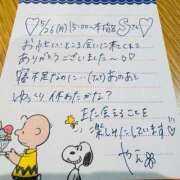 ♡ 5/26(月)15:00〜本指名Sさん♡
お忙しいところ会いに来てくれて
ありがとうございました〜♡
寝不足なのに…(TT)あのあと
ゆっくり休めたかな?
また会えることを
楽しみにしています♡